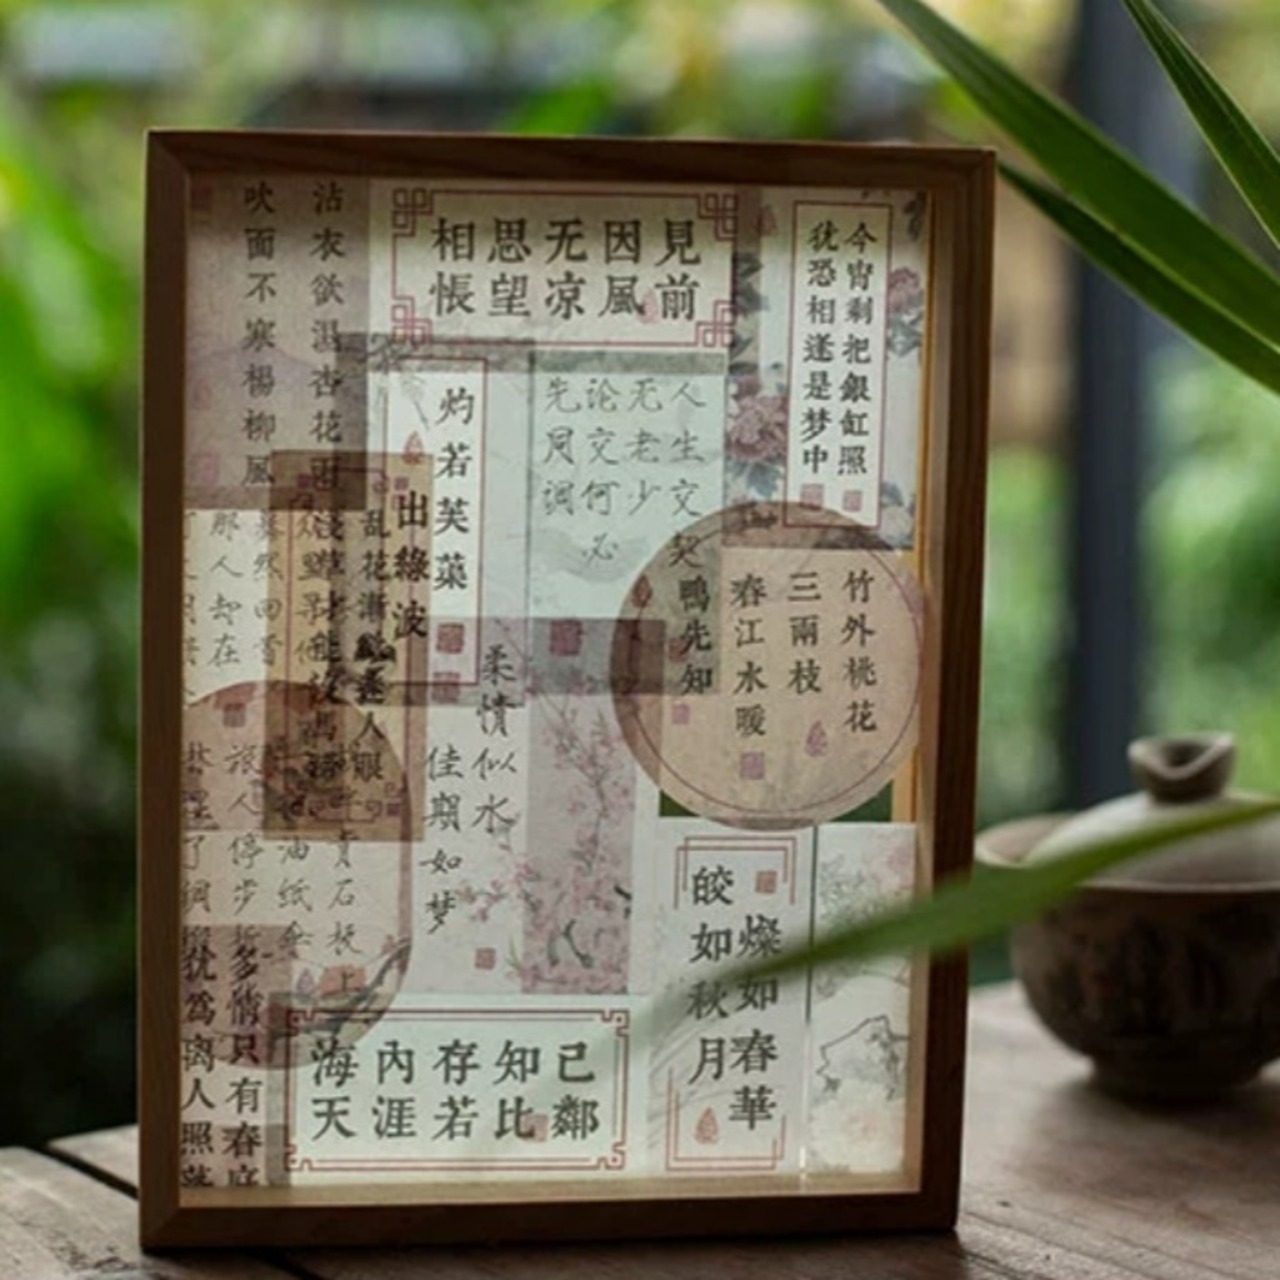 沾衣欲湿杏花雨
吹面不寒楊柳風
相思无因見
悵望凉風前
今宵剩把銀缸照
犹恐相逢是梦中
灼若芙蕖
出綠波
人生交契
无老少
论交何必
先同调
竹外桃花
三兩枝
春江水暖
鴨先知
乱花漸
人眼
蓦然回首
那人却在
柔情似水
佳期如梦
青石板上
油纸伞
旅人停步
皎如秋月
燦如春華
海內存知己
天涯若比鄰
多情只有春庭
犹為离人照落